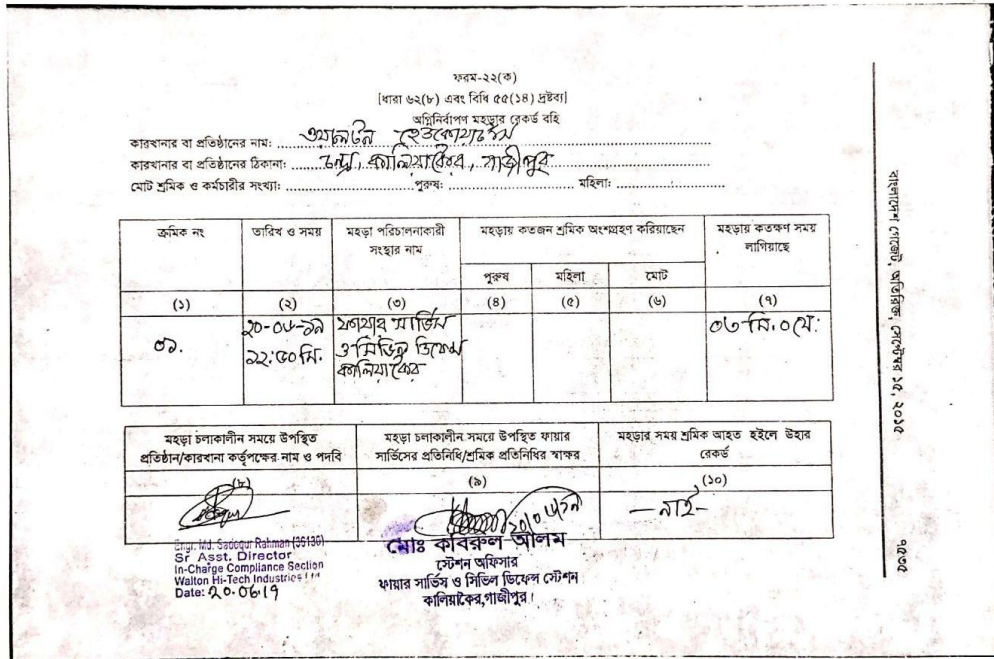 ফরম-২২(ক)
[ধারা ৬২(৮) এবং বিধি ৫৫(১৪) দ্রষ্টব্য]
অগ্নিনির্বাপণ মহড়ার রেকর্ড বহি
কারখানার বা প্রতিষ্ঠানের নাম: ওয়ালটন হেডকোয়ার্টার্স
কারখানার বা প্রতিষ্ঠানের ঠিকানা: চন্দ্রা, কালিয়াকৈর, গাজীপুর
মোট শ্রমিক ও কর্মচারীর সংখ্যা: .......... পুরুষ: .......... মহিলা: ..........
ক্রমিক নং তারিখ ও সময় মহড়া পরিচালনাকারী সংস্থার নাম মহড়ায় কতজন শ্রমিক অংশগ্রহণ করিয়াছেন মহড়ায় কতক্ষণ সময় লাগিয়াছে
পুরুষ মহিলা মোট
(১) (২) (৩) (৪) (৫) (৬) (৭)
০১. ২০-০৬-১৯ ফায়ার সার্ভিস ০৩ মি. ০ সে:
১২:৫০ মি. ও সিভিল ডিফেন্স
কালিয়াকৈর
মহড়া চলাকালীন সময়ে উপস্থিত মহড়া চলাকালীন সময়ে উপস্থিত ফায়ার মহড়ার সময় শ্রমিক আহত হইলে উহার
প্রতিষ্ঠান/কারখানা কর্তৃপক্ষের নাম ও পদবি সার্ভিসের প্রতিনিধি/শ্রমিক প্রতিনিধির স্বাক্ষর রেকর্ড
(৮) (৯) (১০)
২০/০৬/১৯ —নাই—
Engr. Md. Sadequr Rahman (36130)
Sr. Asst. Director
In-Charge Compliance Section
Walton Hi-Tech Industries Ltd
Date: 20.06.19
মোঃ কবিরুল আলম
স্টেশন অফিসার
ফায়ার সার্ভিস ও সিভিল ডিফেন্স স্টেশন
কালিয়াকৈর,গাজীপুর।
বাংলাদেশ গেজেট, অতিরিক্ত, সেপ্টেম্বর ১৫, ২০১৫